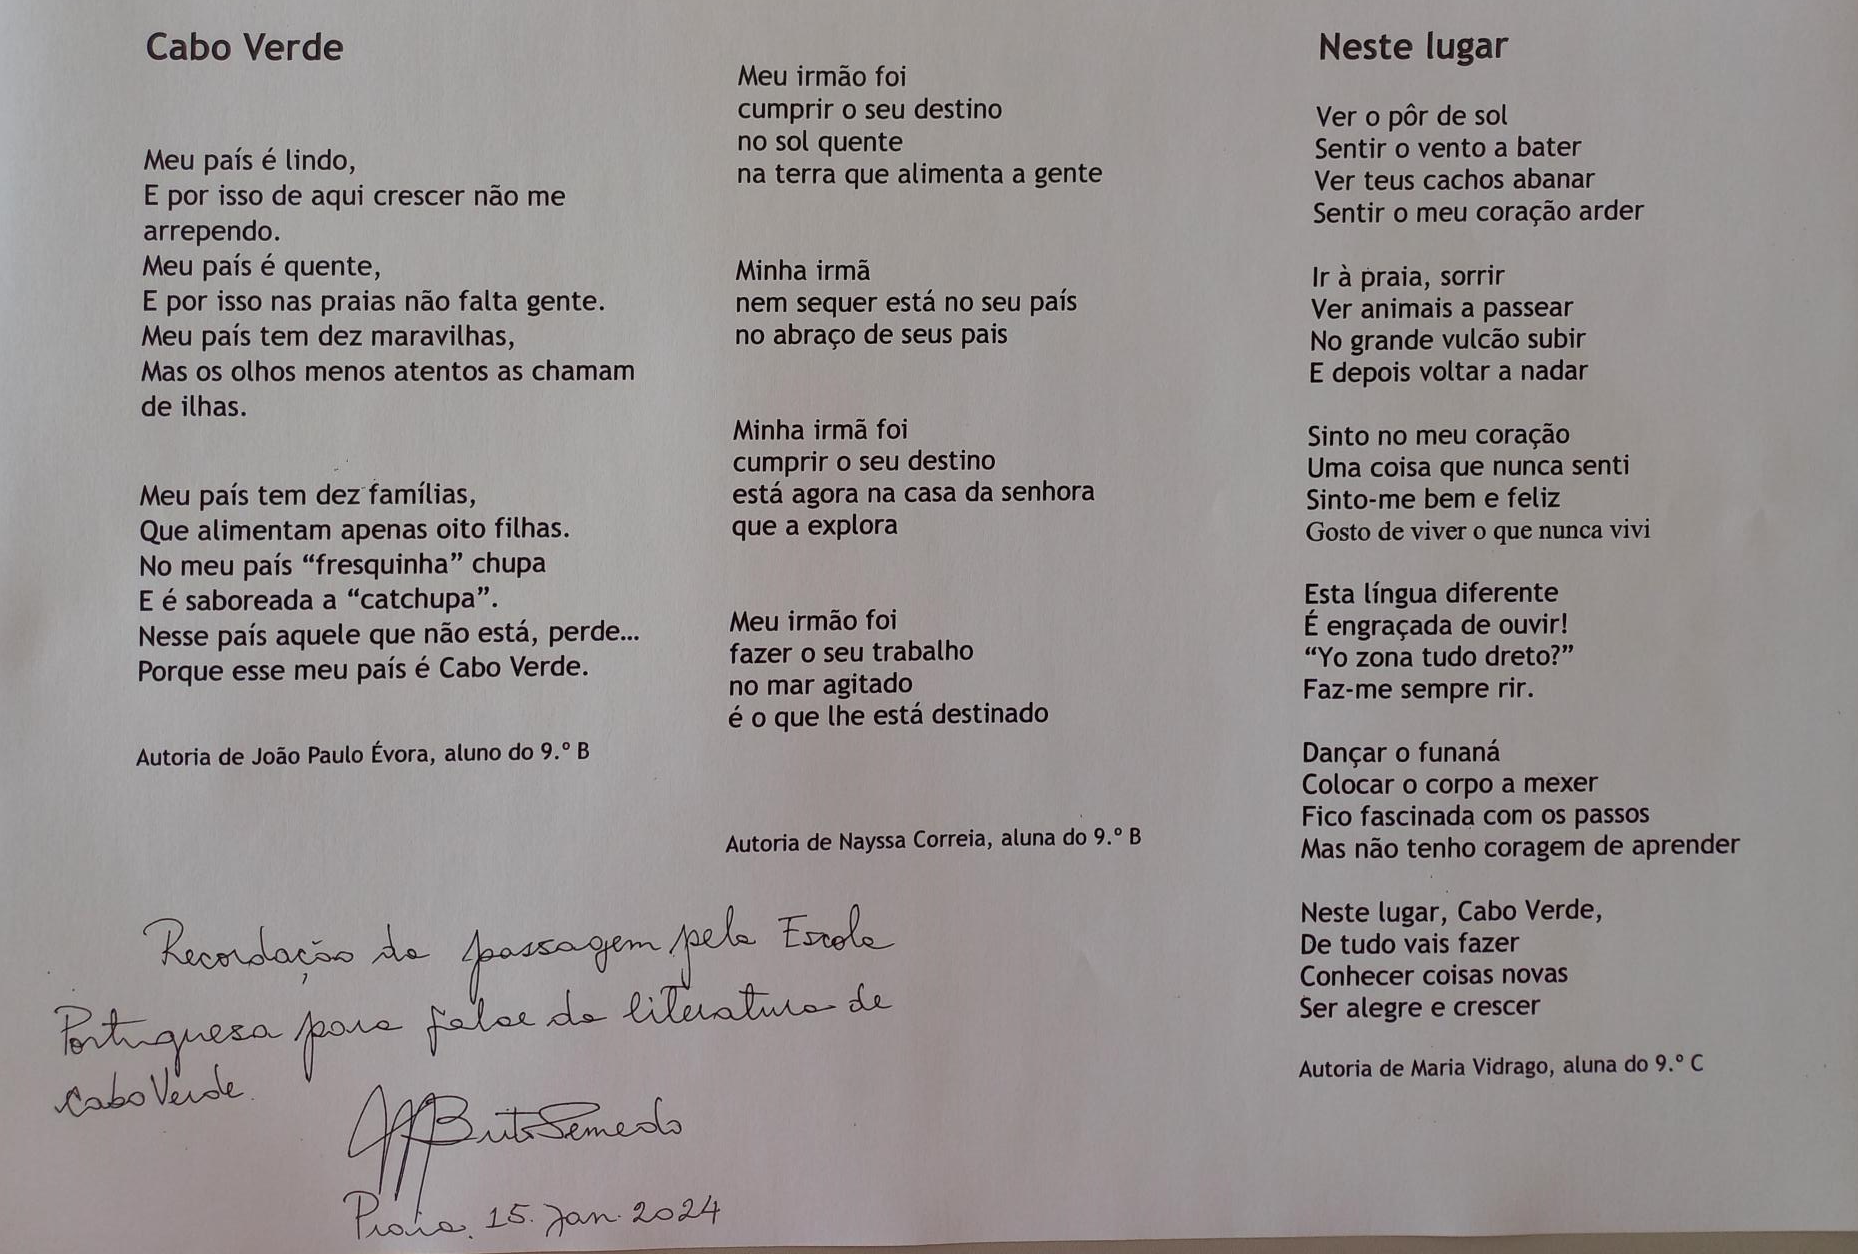 Cabo Verde
Meu país é lindo,
E por isso de aqui crescer não me
arrependo.
Meu país é quente,
E por isso nas praias não falta gente.
Meu país tem dez maravilhas,
Mas os olhos menos atentos as chamam
de ilhas.
Meu país tem dez famílias,
Que alimentam apenas oito filhas.
No meu país “fresquinha” chupa
E é saboreada a “catchupa”.
Nesse país aquele que não está, perde...
Porque esse meu país é Cabo Verde.
Autoria de João Paulo Évora, aluno do 9.º B
Meu irmão foi
cumprir o seu destino
no sol quente
na terra que alimenta a gente
Minha irmã
nem sequer está no seu país
no abraço de seus pais
Minha irmã foi
cumprir o seu destino
está agora na casa da senhora
que a explora
Meu irmão foi
fazer o seu trabalho
no mar agitado
é o que lhe está destinado
Autoria de Nayssa Correia, aluna do 9.º B
Neste lugar
Ver o pôr de sol
Sentir o vento a bater
Ver teus cachos abanar
Sentir o meu coração arder
Ir à praia, sorrir
Ver animais a passear
No grande vulcão subir
E depois voltar a nadar
Sinto no meu coração
Uma coisa que nunca senti
Sinto-me bem e feliz
Gosto de viver o que nunca vivi
Esta língua diferente
É engraçada de ouvir!
“Yo zona tudo dreto?”
Faz-me sempre rir.
Dançar o funaná
Colocar o corpo a mexer
Fico fascinada com os passos
Mas não tenho coragem de aprender
Neste lugar, Cabo Verde,
De tudo vais fazer
Conhecer coisas novas
Ser alegre e crescer
Autoria de Maria Vidrago, aluna do 9.º C
Recordação da passagem pela Escola
Portuguesa para falar da literatura de
Cabo Verde.
Brito Semedo
Praia, 15. Jan. 2024